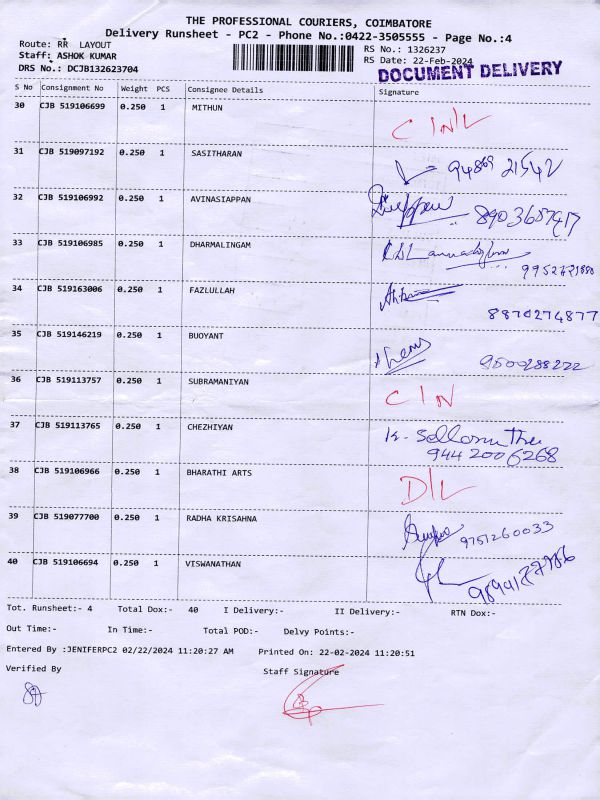 THE PROFESSIONAL COURIERS, COIMBATORE
Delivery Runsheet - PC2 - Phone No.:0422-3505555 - Page No.:4
Route: RR LAYOUT
RS No.: 1326237
Staff: ASHOK KUMAR
RS Date: 22-Feb-2024
DRS No.: DCJB132623704
DOCUMENT DELIVERY
S No Consignment No Weight PCS Consignee Details Signature
30 CJB 519106699 0.250 1 MITHUN
31 CJB 519097192 0.250 1 SASITHARAN
32 CJB 519106992 0.250 1 AVINASIAPPAN
33 CJB 519106985 0.250 1 DHARMALINGAM
34 CJB 519163006 0.250 1 FAZLULLAH
8870274877
35 CJB 519146219 0.250 1 BUOYANT
9500288222
36 CJB 519113757 0.250 1 SUBRAMANIYAN
C IN
37 CJB 519113765 0.250 1 CHEZHIYAN
9442006268
38 CJB 519106966 0.250 1 BHARATHI ARTS
D/L
39 CJB 519077700 0.250 1 RADHA KRISAHNA
9751260033
40 CJB 519106694 0.250 1 VISWANATHAN
Tot. Runsheet:- 4 Total Dox:- 40 I Delivery:- II Delivery:- RTN Dox:-
Out Time:- In Time:- Total POD:- Delvy Points:-
Entered By :JENIFERPC2 02/22/2024 11:20:27 AM Printed On: 22-02-2024 11:20:51
Verified By Staff Signature